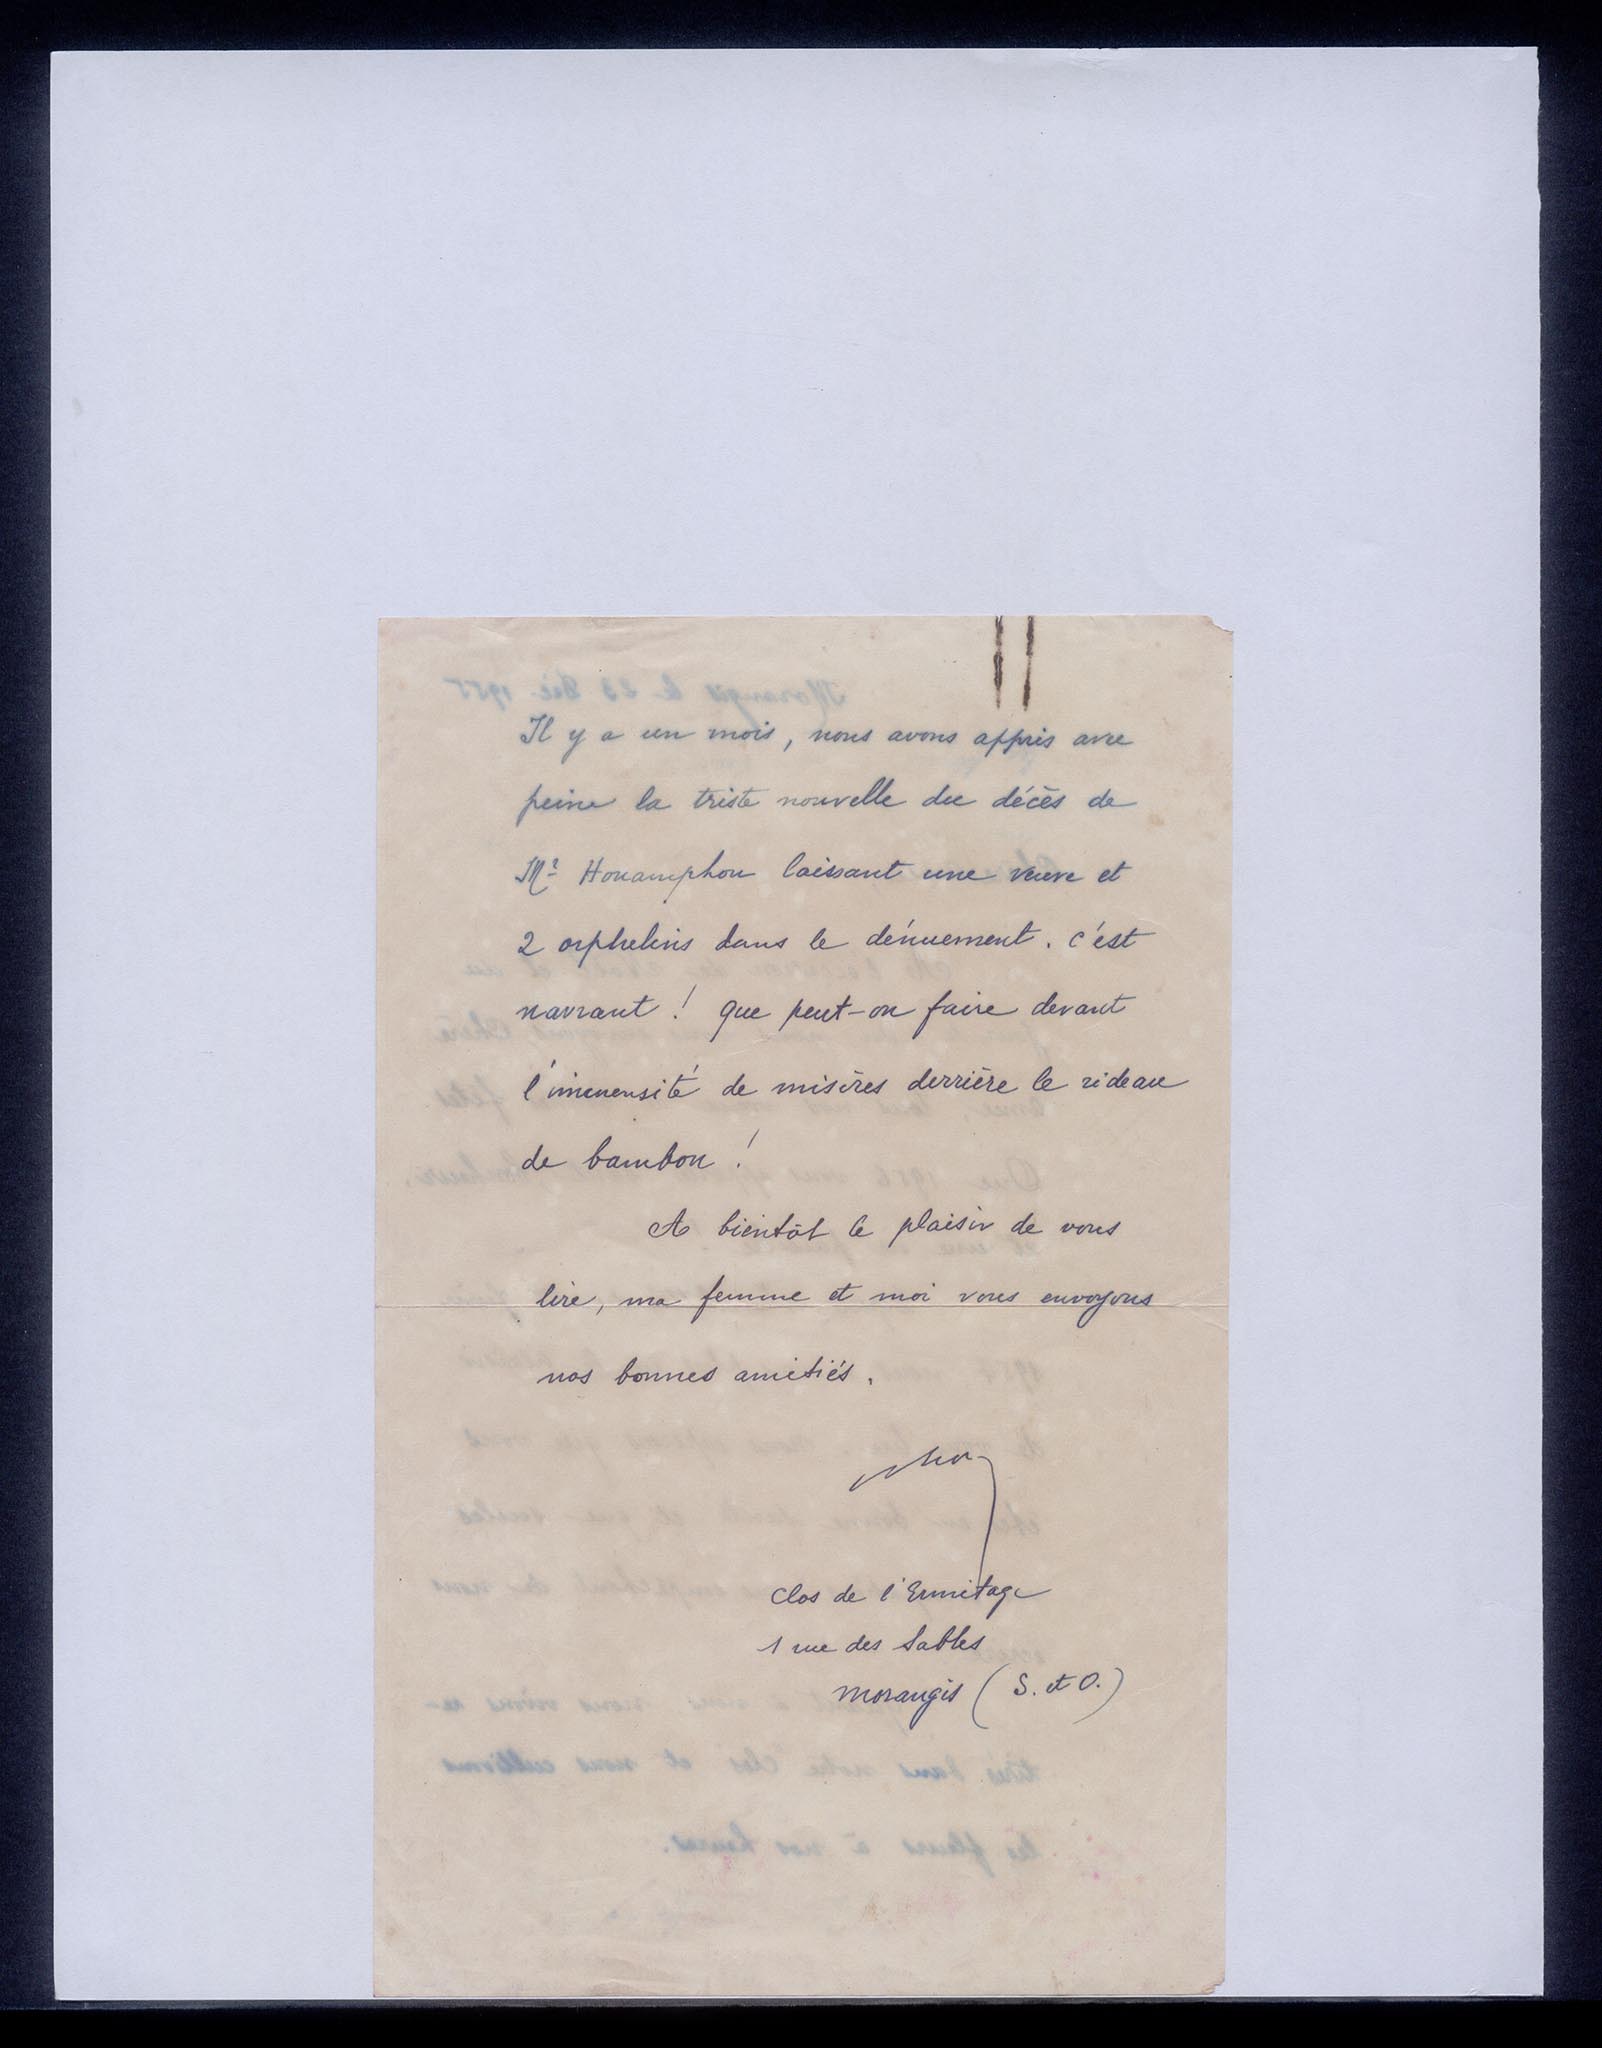 Il y a un mois, nous avons appris avec
peine la triste nouvelle du décès de
Mr Houamphou laissant une veuve et
2 orphelins dans le dénuement. c'est
navrant ! que peut-on faire devant
l'immensité de misères derrière le rideau
de bambou !
A bientôt le plaisir de vous
lire, ma femme et moi vous envoyons
nos bonnes amitiés.
Clos de l'Ermitage
1 rue des Sables
Morangis (S. et O.)